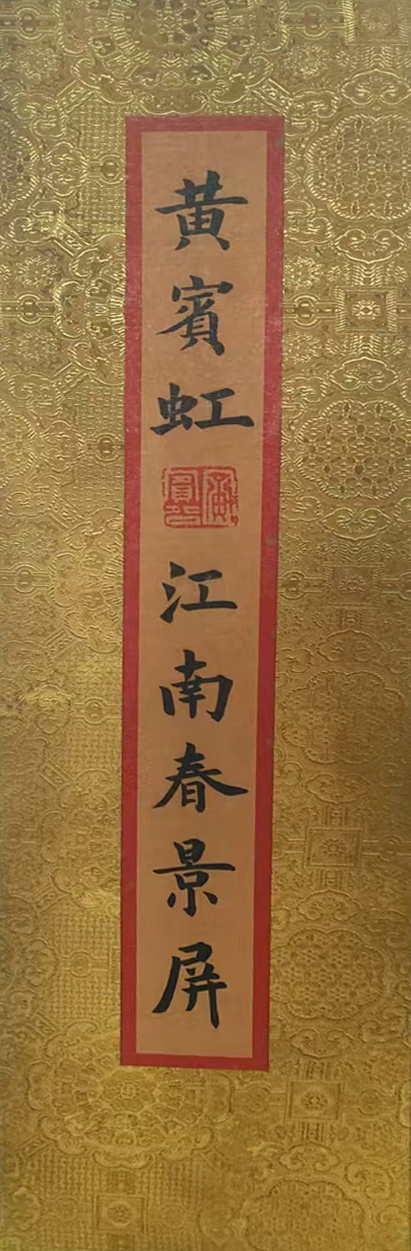 黄賓虹
江南春景屏